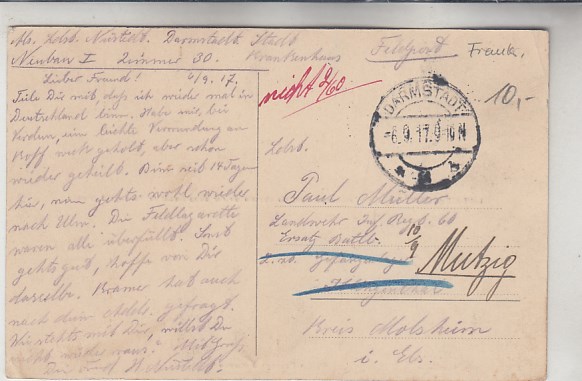 Abs. Ldst. Darmstadt Stadt
Neubau I Zimmer 30. Krankenhaus
Feldpost
Frank.
Lieber Freund! 6/9. 17.
Teile Dir mit, daß ich wieder mal in
Deutschland bin. Habe mir, bei
Verdun, eine leichte Verwundung am
Kopf geholt, aber schon
wieder geheilt. Bin seit 14 Tagen
hier, nun gehts wohl wieder
nach Ulm. Die Feldlazarette
waren alle überfüllt. Sonst
gehts gut, hoffe von Dir
dasselbe. Kramer hat auch
nach dein Adds. gefragt.
Wie stehts mit Dir, willst Du
nicht wieder raus? Mit Gruß
Dein Freund
nicht 9/60
DARMSTADT
-6.9.17.9-10N
10,-
Ldst.
Paul Müller
Landwehr Inf. Regt. 60
Ersatz Batl.
10/9
Mutzig
Kreis Molsheim
i. Els.